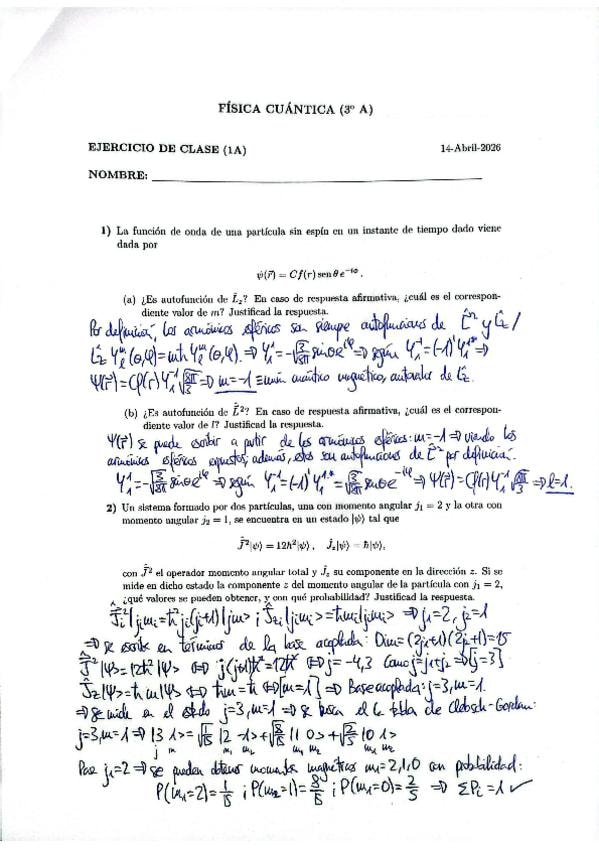 FÍSICA CUÁNTICA (3º A)
EJERCICIO DE CLASE (1A) 14-Abril-2026
NOMBRE:
1) La función de onda de una partícula sin espín en un instante de tiempo dado viene
dada por
ψ(r⃗) = C f(r) sen θ e^{-iφ}.
(a) ¿Es autofunción de L̂z? En caso de respuesta afirmativa, ¿cuál es el correspon-
diente valor de m? Justificad la respuesta.
Por definición, los armónicos esféricos son siempre autofunciones de L̂² y L̂z /
L̂z Yₗᵐ(θ,φ) = mħ Yₗᵐ(θ,φ). ⇒ Y₁¹ = -√(3/8π) sinθ e^{iφ} ⇒ según Y₁⁻¹ = (-1)¹ Y₁¹* ⇒
Ψ(r⃗) = Cf(r) Y₁⁻¹ √(8π/3) ⇒ m = -1 ≡ núm cuántico magnético, autovalor de L̂z.
(b) ¿Es autofunción de L̂²? En caso de respuesta afirmativa, ¿cuál es el correspon-
diente valor de l? Justificad la respuesta.
Ψ(r⃗) se puede escribir a partir de los armónicos esféricos: m = -1 ⇒ viendo los
armónicos esféricos además, estos son autofunciones de L̂² por definición.
Y₁¹ = -√(3/8π) sinθ e^{iφ} ⇒ según Y₁⁻¹ = (-1)¹ Y₁¹* = √(3/8π) sinθ e^{-iφ} ⇒ Ψ(r⃗) = Cf(r) Y₁⁻¹ √(8π/3) ⇒ l = 1.
2) Un sistema formado por dos partículas, una con momento angular j₁ = 2 y la otra con
momento angular j₂ = 1, se encuentra en un estado |ψ⟩ tal que
Ĵ²|ψ⟩ = 12ħ²|ψ⟩, Ĵz|ψ⟩ = ħ|ψ⟩,
con Ĵ² el operador momento angular total y Ĵz su componente en la dirección z. Si se
mide en dicho estado la componente z del momento angular de la partícula con j₁ = 2,
¿qué valores se pueden obtener, y con qué probabilidad? Justificad la respuesta.
Ĵᵢ²|jᵢmᵢ⟩ = ħ²jᵢ(jᵢ+1)|jᵢmᵢ⟩ ; Ĵzᵢ|jᵢmᵢ⟩ = ħmᵢ|jᵢmᵢ⟩ ⇒ j₁ = 2, j₂ = 1
⇒ se escribe en términos de la base acoplada: Dim = (2j₁+1)(2j₂+1) = 15
Ĵ²|Ψ⟩ = 12ħ²|Ψ⟩ ⇔ j(j+1)ħ² = 12ħ² ⇔ j = -4,3 Como j = j₁+j₂ ⇒ [j = 3]
Ĵz|Ψ⟩ = ħm|Ψ⟩ ⇔ ħm = ħ ⇔ [m = 1] ⇒ Base acoplada: j = 3, m = 1.
⇒ Se mide en el estado j = 3, m = 1 ⇒ se busca el la tabla de Clebsch-Gordan:
j = 3, m = 1 ⇒ |3 1⟩ = √(1/15) |2 -1⟩ + √(8/15) |1 0⟩ + √(2/5) |0 1⟩
j m m₁ m₂ m₁ m₂ m₁ m₂
Para j₁ = 2 ⇒ se pueden obtener momentos magnéticos m₁ = 2,1,0 con probabilidad:
P(m₁=2) = 1/15 ; P(m₁=1) = 8/15 ; P(m₁=0) = 2/5 ⇒ ΣPᵢ = 1 ✓